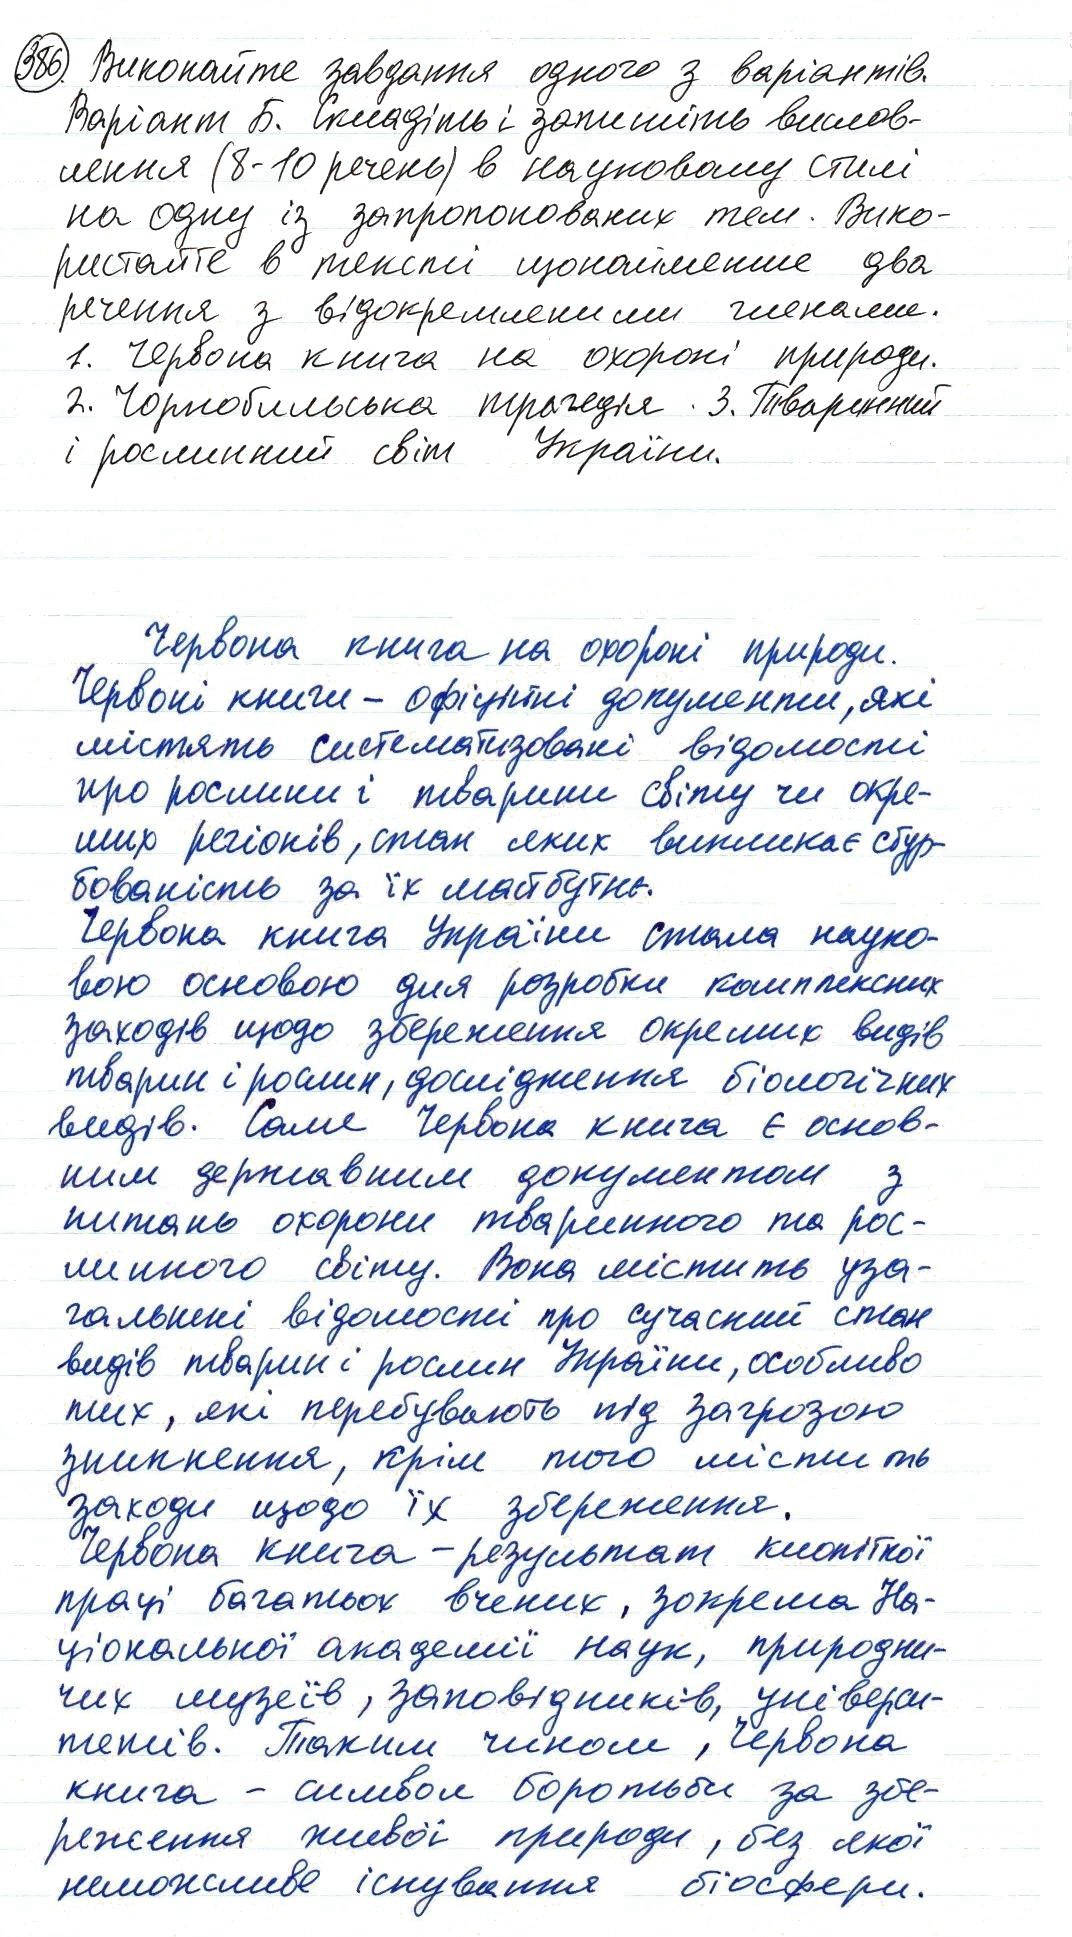 386. Виконайте завдання одного з варіантів.
Варіант Б. Складіть і запишіть вислов-
лення (8-10 речень) в науковому стилі
на одну із запропонованих тем. Вико-
ристайте в тексті щонайменше два
речення з відокремленими членами.
1. Червона книга на охороні природи.
2. Чорнобильська трагедія. 3. Тваринний
і рослинний світ України.
Червона книга на охороні природи.
Червоні книги – офіційні документи, які
містять систематизовані відомості
про рослини і тварини світу чи окре-
мих регіонів, стан яких викликає стур-
бованість за їх майбутнє.
Червона книга України стала науко-
вою основою для розробки комплексних
заходів щодо збереження окремих видів
тварин і рослин, дослідження біологічних
видів. Саме Червона книга є основ-
ним державним документом з
питань охорони тваринного та рос-
линного світу. Вона містить уза-
гальнені відомості про сучасний стан
видів тварин і рослин України, особливо
тих, які перебувають під загрозою
зникнення, крім того містить
заходи щодо їх збереження.
Червона книга – результат клопіткої
праці багатьох вчених, зокрема На-
ціональної академії наук, природни-
чих музеїв, заповідників, універси-
тетів. Таким чином, Червона
книга – символ боротьби за збе-
реження живої природи, без якої
неможливе існування біосфери.